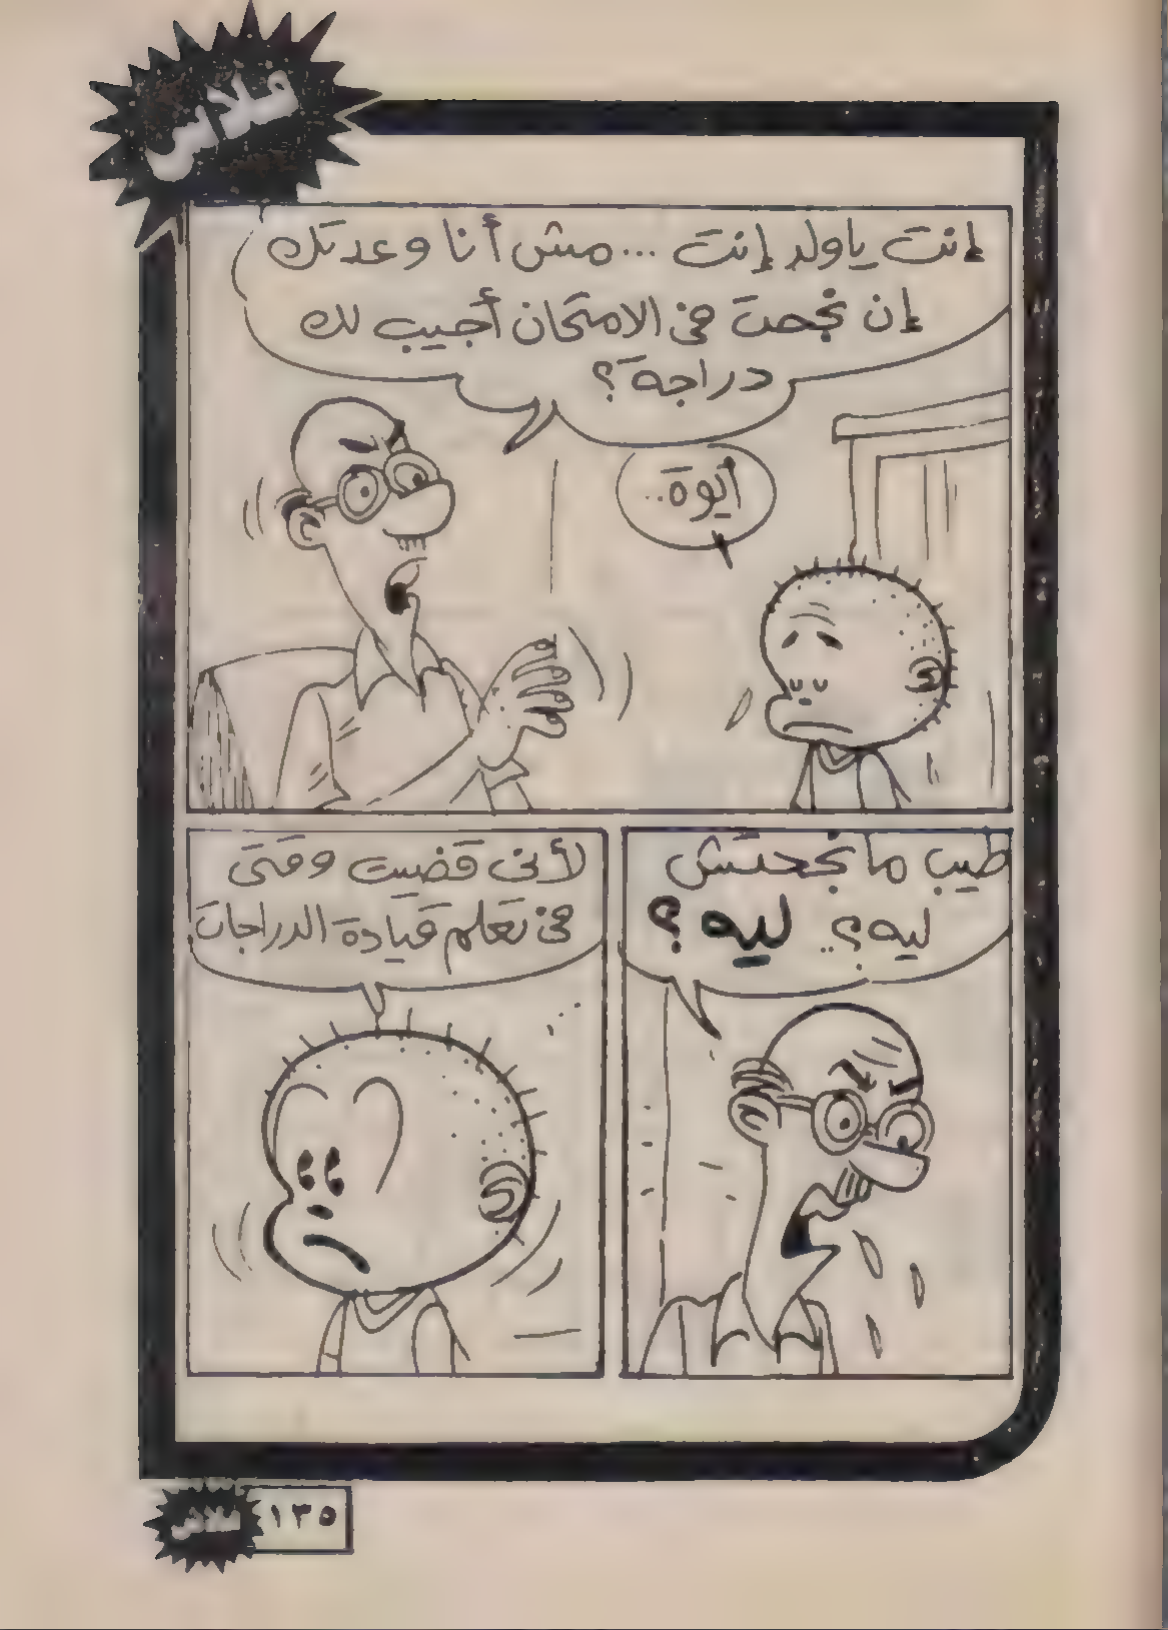 فلاش
إنت ياولد إنت ... مش أنا وعدتك
إن نجحت في الامتحان أجيب لك
دراجة؟
أيوة..
طيب ما نجحتش
ليه؟.. ليه؟
لأنى قضيت وقتى
في تعلم قيادة الدراجات
فلاش
١٣٥